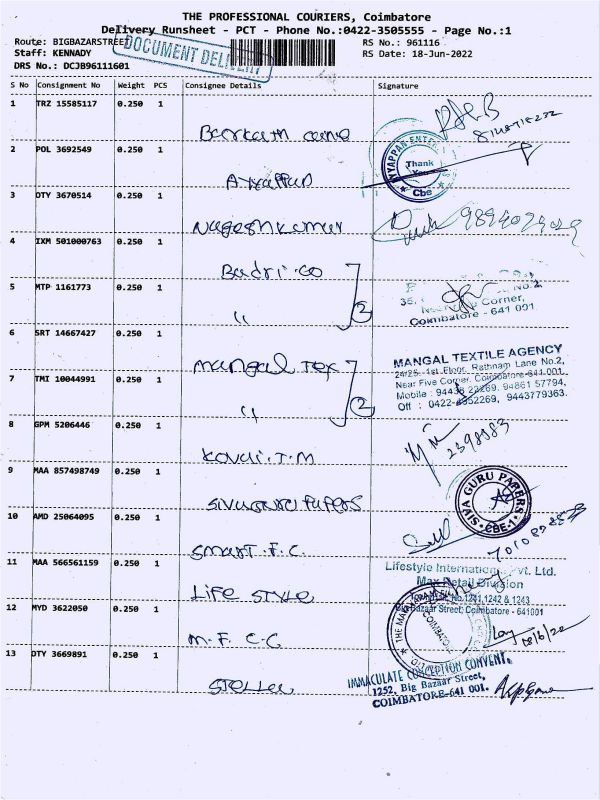 THE PROFESSIONAL COURIERS, Coimbatore
Delivery Runsheet - PCT - Phone No.:0422-3505555 - Page No.:1
Route: BIGBAZARSTREET
DOCUMENT DELIVERY
RS No.: 961116
Staff: KENNADY
RS Date: 18-Jun-2022
DRS No.: DCJB96111601
S No Consignment No Weight PCS Consignee Details Signature
1 TRZ 15585117 0.250 1
2 POL 3692549 0.250 1 Ayyappan
AYYAPPAN ENTER
Thank
You
Cbe
3 DTY 3670514 0.250 1 Nageshkumar
4 IXM 501000763 0.250 1 Badri.Co
5 MTP 1161773 0.250 1 "
2
35,
Corner,
Coimbatore - 641 001
6 SRT 14667427 0.250 1 Mangal Tex
MANGAL TEXTILE AGENCY
24/25, 1st Floor, Rathnam Lane No.2,
Near Five Corner, Coimbatore-641 001.
Mobile : 94438 22269, 94861 57794,
Off : 0422-4352269, 9443779363.
7 TMI 10044991 0.250 1 "
2
8 GPM 5206446 0.250 1
9 MAA 857498749 0.250 1 Sivaguru Papers
SIVA GURU PAPERS
CBE-1
10 AMD 25064095 0.250 1 Smart.F.C.
11 MAA 566561159 0.250 1 Life Style
Lifestyle International Pvt. Ltd.
Max Retail Division
No.1241,1242 & 1243
Big Bazaar Street, Coimbatore - 641001
12 MYD 3622050 0.250 1 M.F.C.C
18/6/22
13 DTY 3669891 0.250 1 Stella
IMMACULATE CONCEPTION CONVENT,
1252, Big Bazaar Street,
COIMBATORE-641 001.